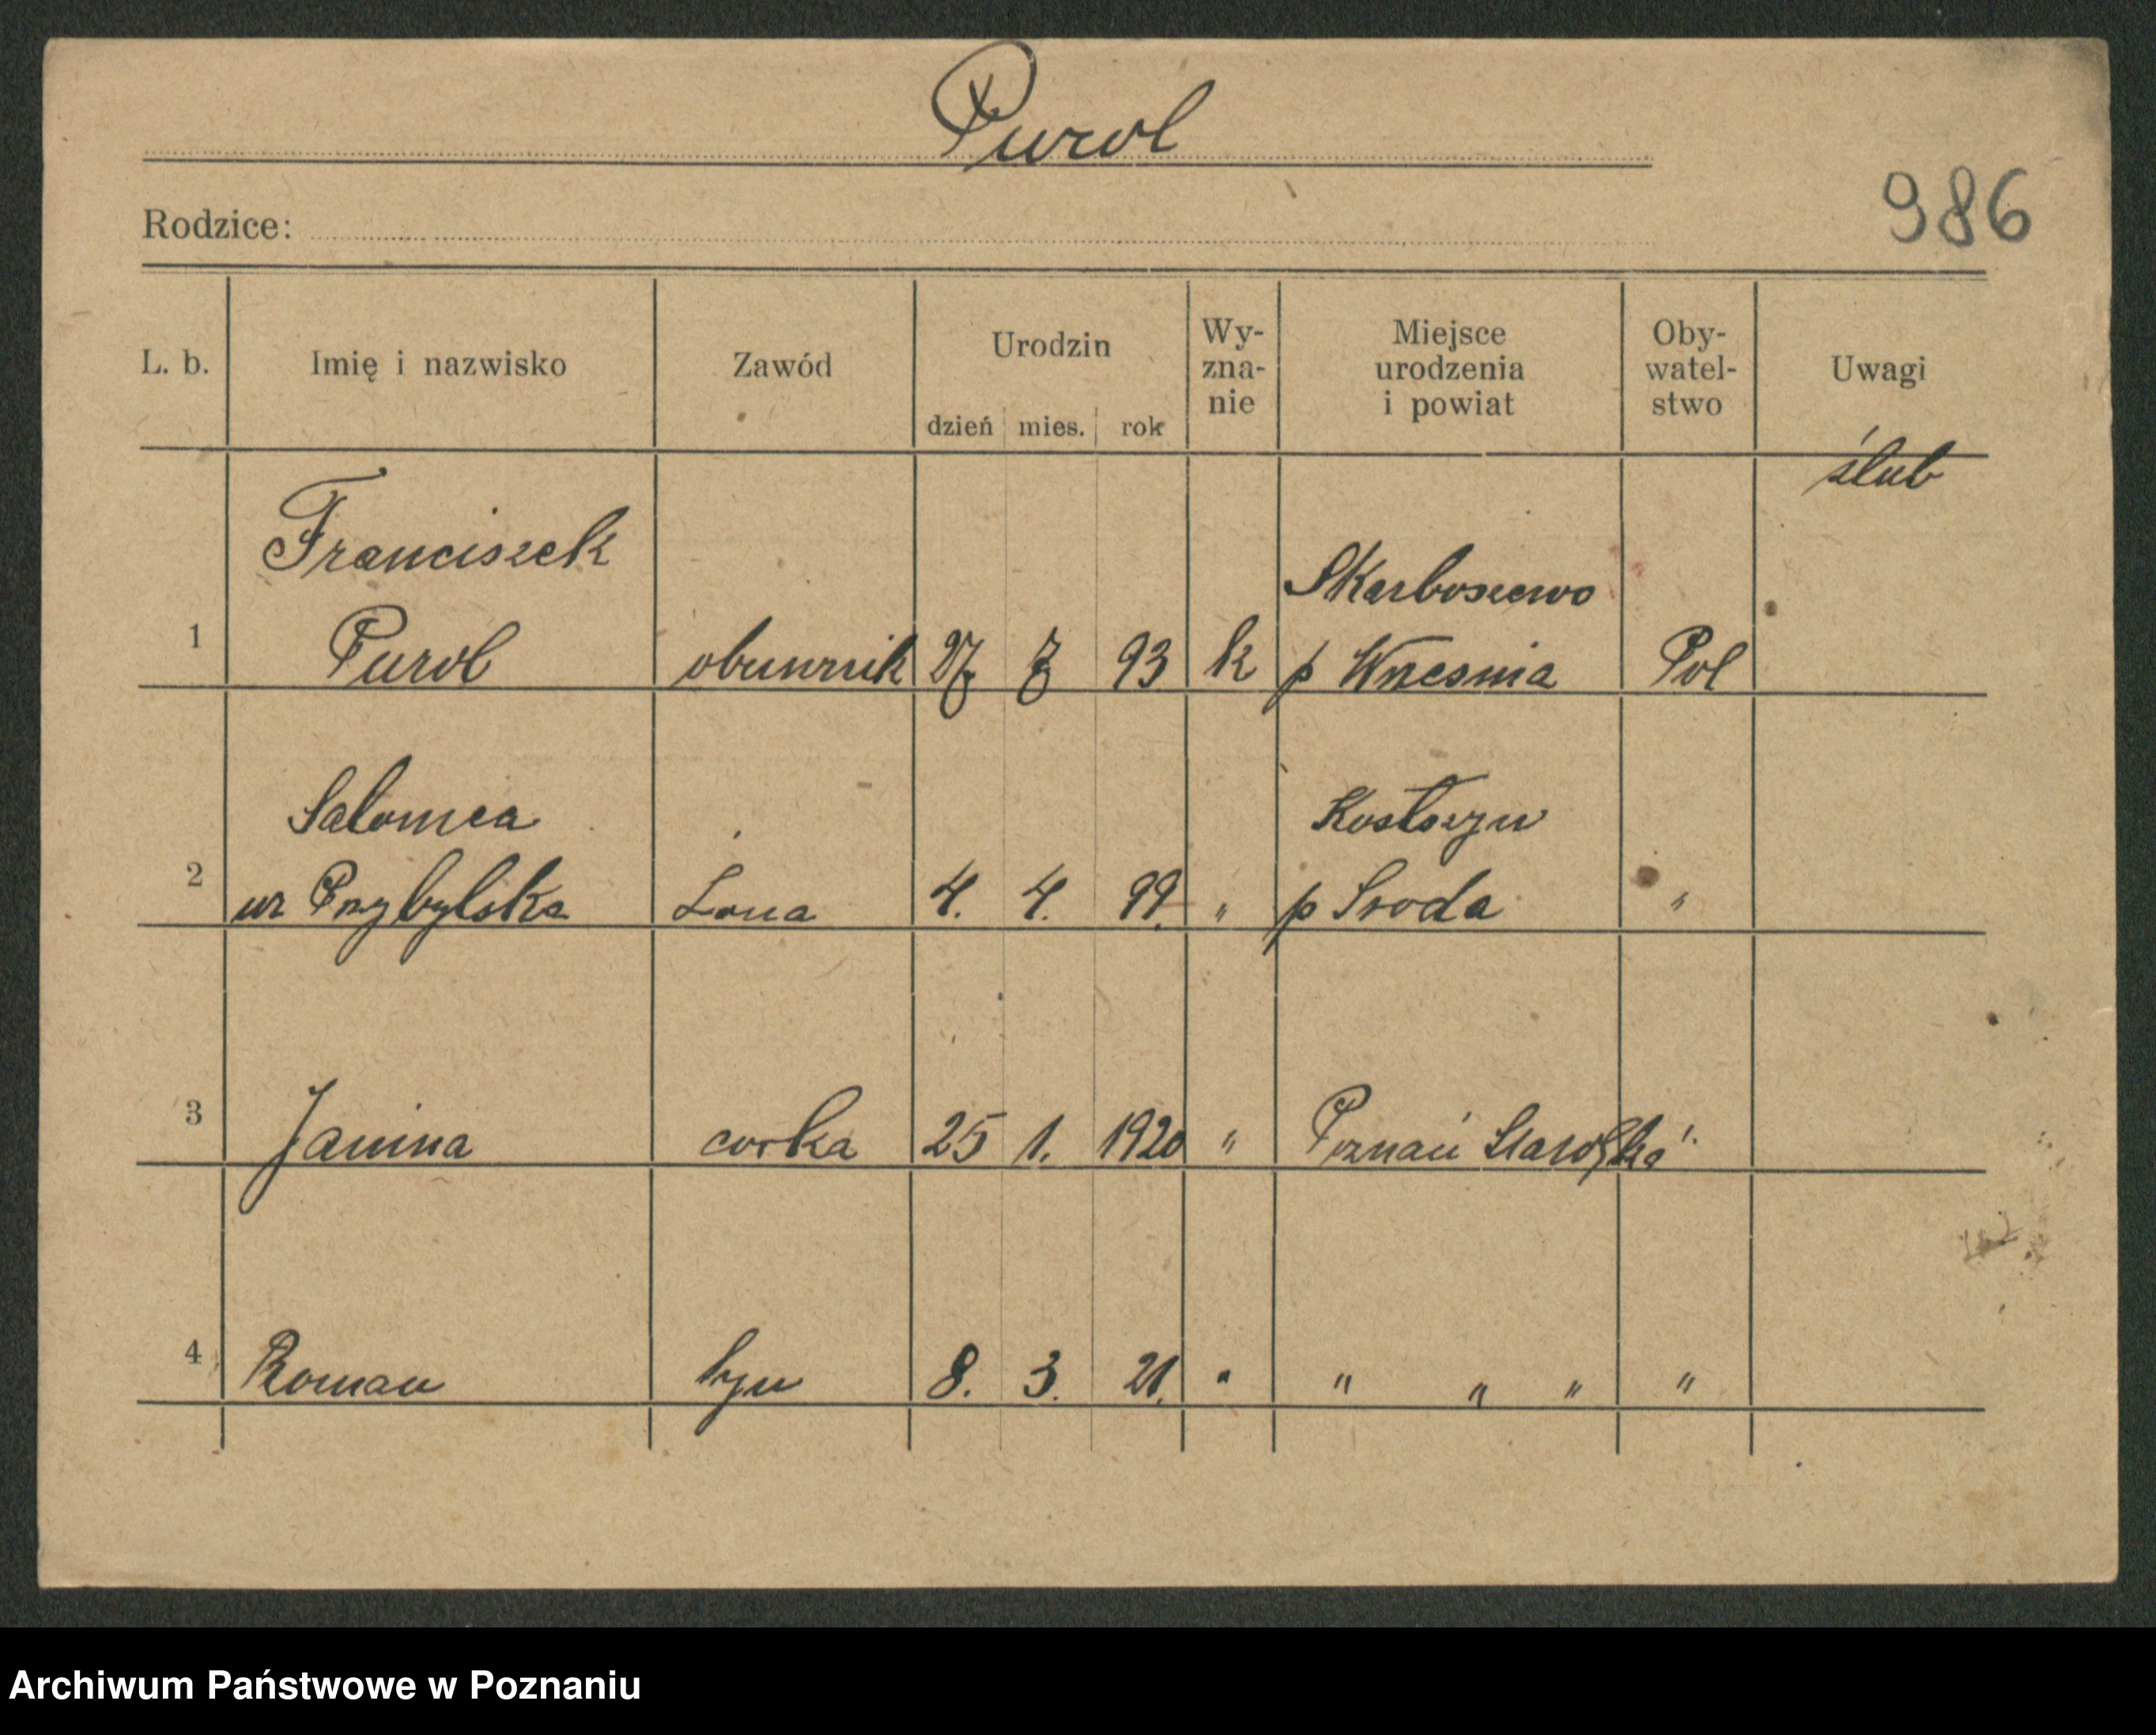 Purol
986
Rodzice:
L. b. Imię i nazwisko Zawód Urodzin dzień mies. rok Wy-
zna-
nie Miejsce
urodzenia
i powiat Oby-
watel-
stwo Uwagi
ślub
Franciszek Skarboszewo
1 Purol obuwnik 27 7 93 k p Wrzesnia Pol
Salomea Kostszyn
2 ur Przybylska żona 4. 4. 99. " p Sroda "
3 Janina corka 25 1. 1920 " Poznań "
4 Roman syn 8. 3. 21. " " " " "
Archiwum Państwowe w Poznaniu